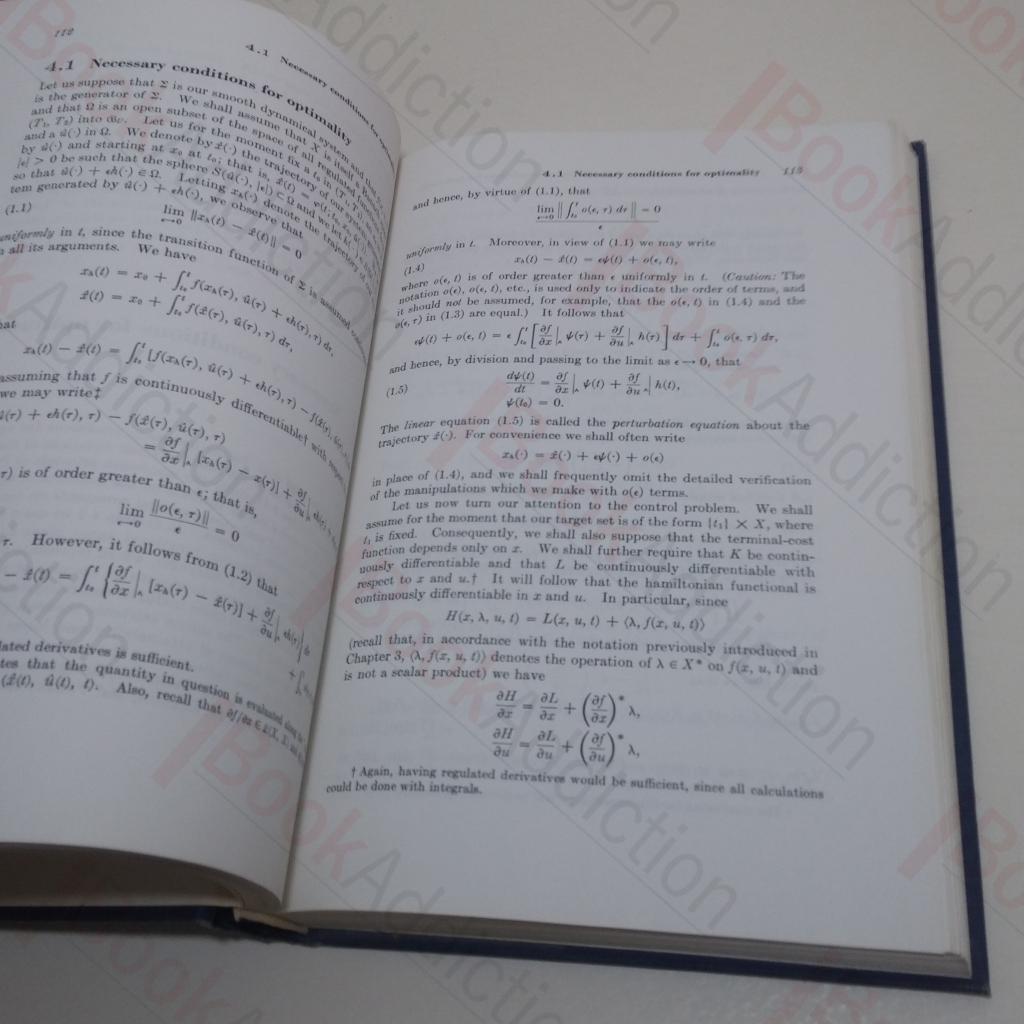 112
4.1 Necessary conditions for
4.1 Necessary conditions for optimality
Let us suppose that Σ is our smooth dynamical system and that
is the generator of Σ. We shall assume that X is itself a
and that Ω is an open subset of the space of all regulated
(T₁, T₂) into Let us for the moment fix a t₀ in (T₁, T₂)
and a û(·) in Ω. We denote by x̂(·) the trajectory of our system
by û(·) and starting at x₀ at t₀; that is, x̂(t) =
|ϵ| > 0 be such that the sphere S(û(·), |ϵ|) ⊂ Ω and we let
so that û(·) + ϵh(·) ∈ Ω. Letting xₕ(·) denote the trajectory of our
tem generated by û(·) + ϵh(·), we observe that
(1.1) lim ϵ→0 ||xₕ(t) − x̂(t)|| = 0
uniformly in t, since the transition function of Σ is assumed
all its arguments. We have
xₕ(t) = x₀ + ∫ₜ₀ᵗ f(xₕ(τ), û(τ) + ϵh(τ), τ) dτ,
x̂(t) = x₀ + ∫ₜ₀ᵗ f(x̂(τ), û(τ), τ) dτ,
at
xₕ(t) − x̂(t) = ∫ₜ₀ᵗ [f(xₕ(τ), û(τ) + ϵh(τ), τ) − f(x̂(τ), û(τ),
assuming that f is continuously differentiable† with
we may write‡
û(τ) + ϵh(τ), τ) − f(x̂(τ), û(τ), τ)
= ∂f/∂x|^ [xₕ(τ) − x(τ)] + ∂f/∂u|^ ϵh(τ)
τ) is of order greater than ϵ; that is,
lim ϵ→0 ||o(ϵ, τ)||/ϵ = 0
τ. However, it follows from (1.2) that
− x̂(t) = ∫ₜ₀ᵗ {∂f/∂x|^ [xₕ(τ) − x̂(τ)] + ∂f/∂u|^ ϵh(τ)} dτ
lated derivatives is sufficient.
tes that the quantity in question is evaluated along the
(x̂(t), û(t), t). Also, recall that ∂f/∂x ∈
4.1 Necessary conditions for optimality 113
and hence, by virtue of (1.1), that
lim ϵ→0 ||∫ₜ₀ᵗ o(ϵ, τ) dτ||/ϵ = 0
uniformly in t. Moreover, in view of (1.1) we may write
(1.4) xₕ(t) − x̂(t) = ϵψ(t) + o(ϵ, t),
where o(ϵ, t) is of order greater than ϵ uniformly in t. (Caution: The
notation o(ϵ), o(ϵ, t), etc., is used only to indicate the order of terms, and
it should not be assumed, for example, that the o(ϵ, t) in (1.4) and the
o(ϵ, τ) in (1.3) are equal.) It follows that
ϵψ(t) + o(ϵ, t) = ϵ ∫ₜ₀ᵗ [∂f/∂x|^ ψ(τ) + ∂f/∂u|^ h(τ)] dτ + ∫ₜ₀ᵗ o(ϵ, τ) dτ,
and hence, by division and passing to the limit as ϵ → 0, that
(1.5) dψ(t)/dt = ∂f/∂x|^ ψ(t) + ∂f/∂u|^ h(t),
ψ(t₀) = 0.
The linear equation (1.5) is called the perturbation equation about the
trajectory x̂(·). For convenience we shall often write
xₕ(·) = x̂(·) + ϵψ(·) + o(ϵ)
in place of (1.4), and we shall frequently omit the detailed verification
of the manipulations which we make with o(ϵ) terms.
Let us now turn our attention to the control problem. We shall
assume for the moment that our target set is of the form {t₁} × X, where
t₁ is fixed. Consequently, we shall also suppose that the terminal-cost
function depends only on x. We shall further require that K be contin-
uously differentiable and that L be continuously differentiable with
respect to x and u.† It will follow that the hamiltonian functional is
continuously differentiable in x and u. In particular, since
H(x, λ, u, t) = L(x, u, t) + ⟨λ, f(x, u, t)⟩
(recall that, in accordance with the notation previously introduced in
Chapter 3, ⟨λ, f(x, u, t)⟩ denotes the operation of λ ∈ X* on f(x, u, t) and
is not a scalar product) we have
∂H/∂x = ∂L/∂x + (∂f/∂x)* λ,
∂H/∂u = ∂L/∂u + (∂f/∂u)* λ,
† Again, having regulated derivatives would be sufficient, since all calculations
could be done with integrals.
BookAddiction